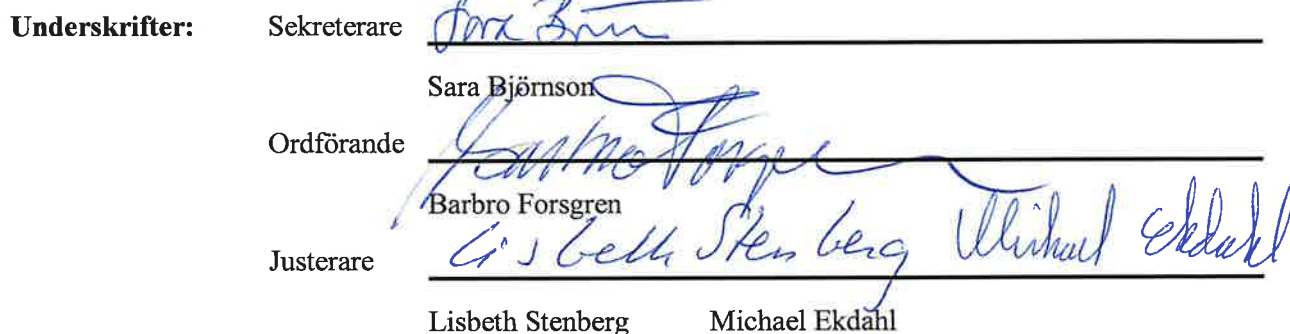 Underskrifter: Sekreterare Sara Björnson
Sara Björnson
Ordförande Barbro Forsgren
Barbro Forsgren
Justerare Lisbeth Stenberg Michael Ekdahl
Lisbeth Stenberg Michael Ekdahl